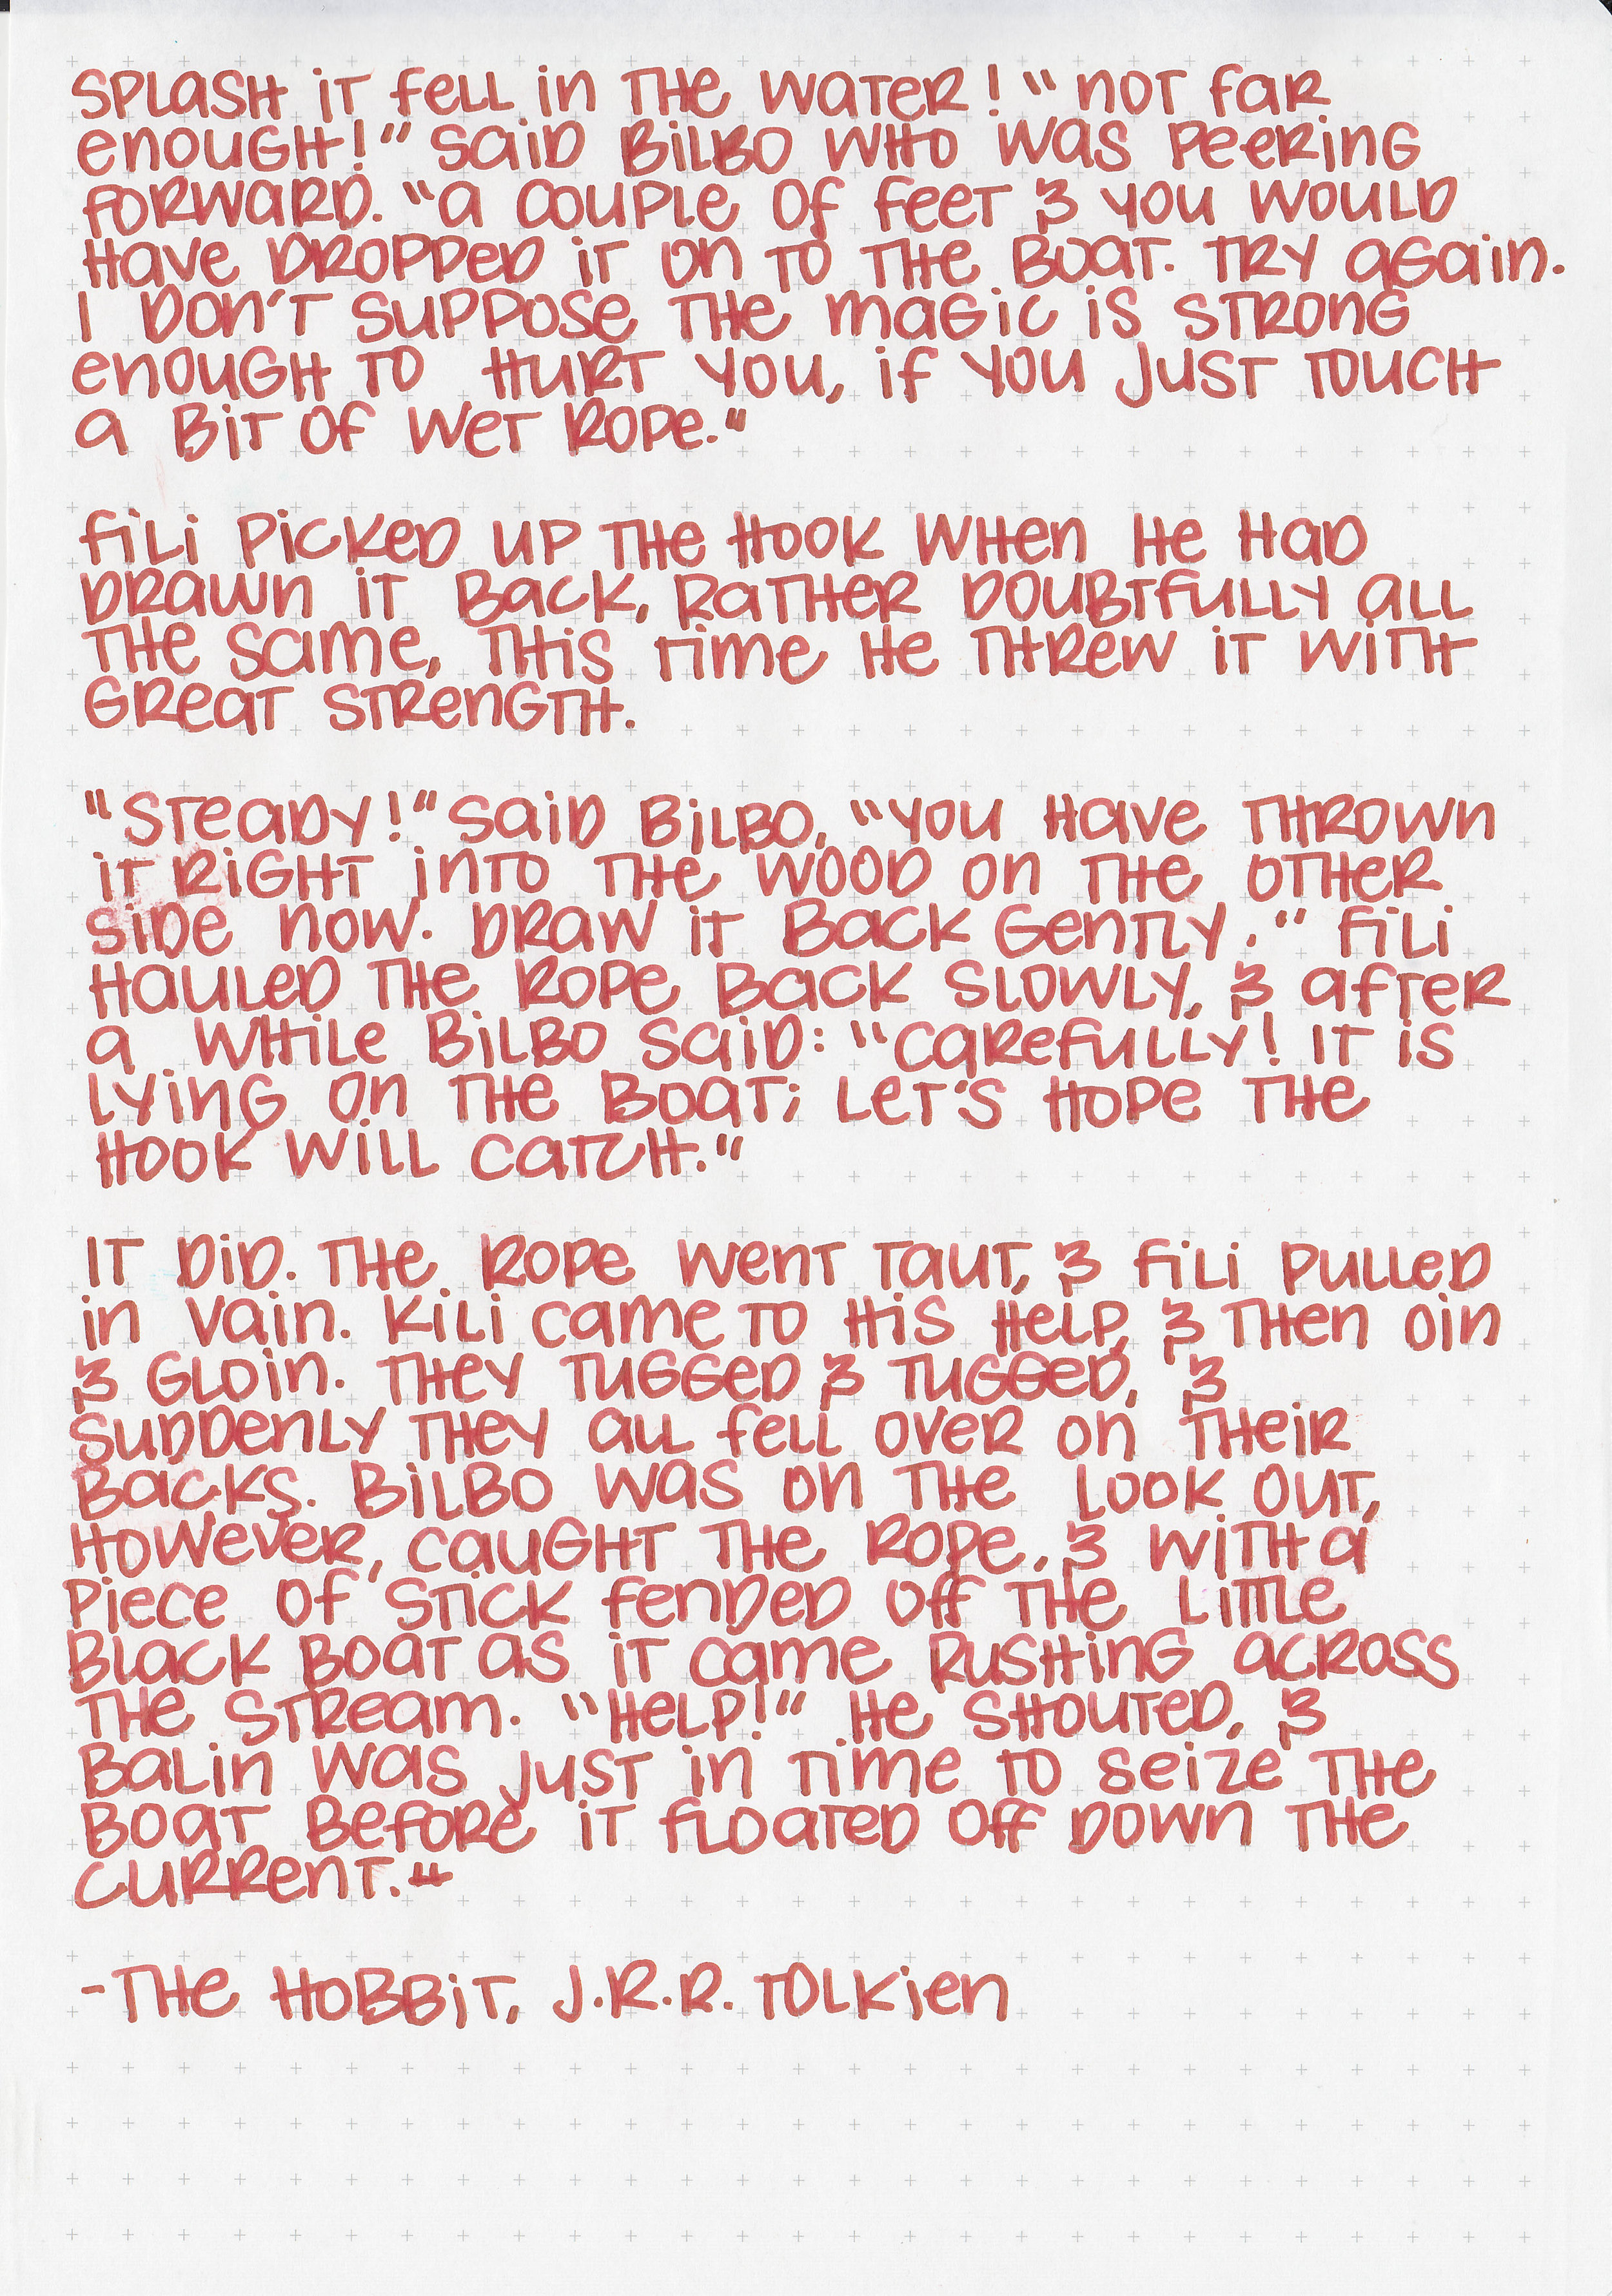 Splash it fell in the water! "Not far
enough!" said Bilbo who was peering
forward. "A couple of feet & you would
have dropped it on to the boat. Try again.
I don't suppose the magic is strong
enough to hurt you, if you just touch
a bit of wet rope."

Fili picked up the hook when he had
drawn it back, rather doubtfully all
the same, this time he threw it with
great strength.

"Steady!" said Bilbo, "you have thrown
it right into the wood on the other
side now. Draw it back gently." Fili
hauled the rope back slowly, & after
a while Bilbo said: "Carefully! It is
lying on the boat; let's hope the
hook will catch."

It did. The rope went taut, & Fili pulled
in vain. Kili came to his help, & then Oin
& Gloin. They tugged & tugged, &
suddenly they all fell over on their
backs. Bilbo was on the look out,
however, caught the rope, & with a
piece of stick fended off the little
black boat as it came rushing across
the stream. "Help!" he shouted, &
Balin was just in time to seize the
boat before it floated off down the
current."

-The Hobbit, J.R.R. Tolkien